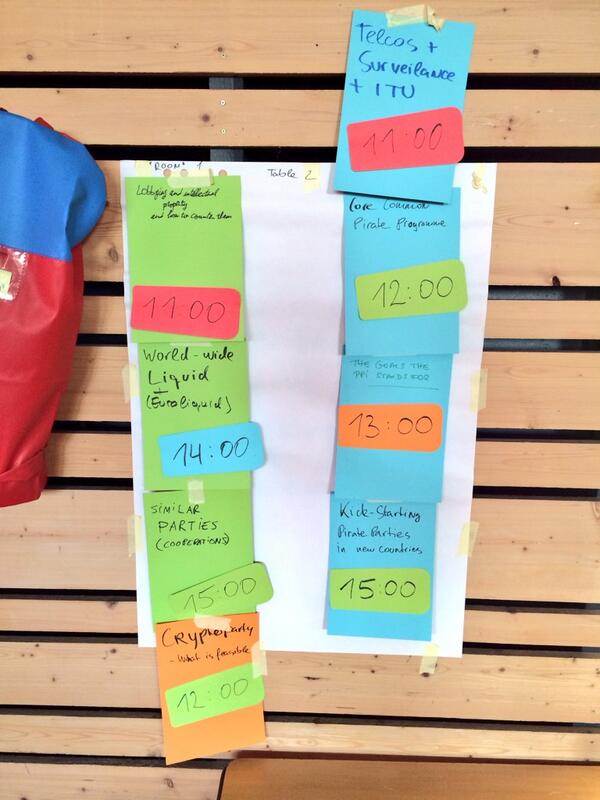 Telcos +
Surveilance
+ ITU
11:00
"ROOM" 1
Table 2
Lobbying and intellectual
property
and how to counter them
11:00
World-wide
Liquid
(Euroliquid)
14:00
SIMILAR
PARTIES
(COOPERATIONS)
15:00
CRyptoparty
- What is feasible
12:00
Core Common
Pirate Programme
12:00
THE GOALS THE
PPi STANDS FOR
13:00
Kick-Starting
Pirate Parties
in new countries
15:00